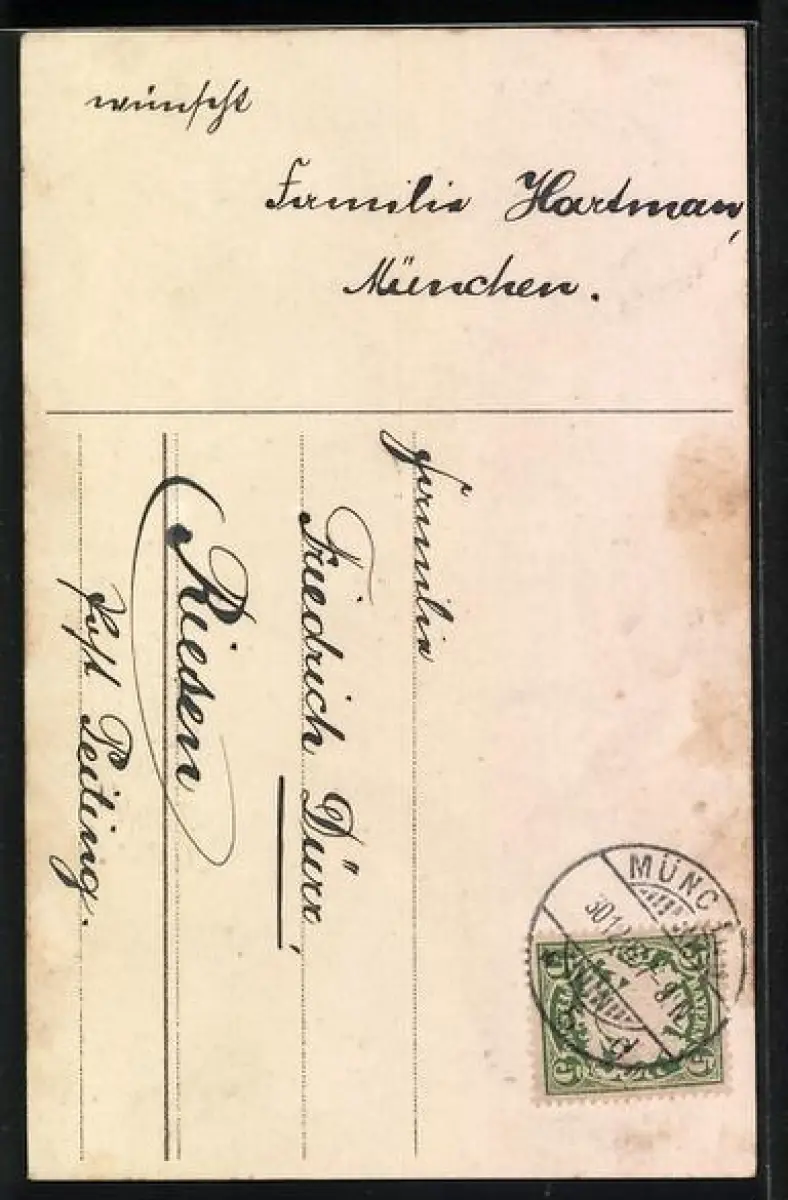 wünscht
Familie Hartman,
München.
Familie
Friedrich Dürr,
Riesen
Post Peiting.
MÜNC
BAYERN